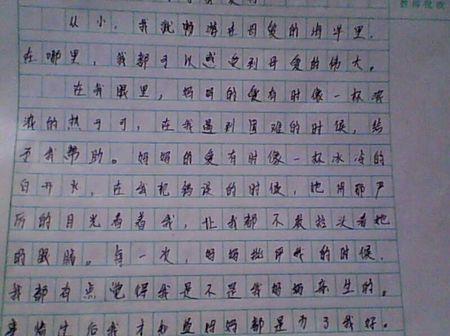 从小，我就畅游在母爱的海洋里，
在哪里，我都可以感受到母爱的伟大。
在我眼里，妈妈的爱有时像一杯浓
浓的热可可，在我遇到困难的时候，给
予我帮助。妈妈的爱有时像一杯冰冷的
白开水，在我犯错误的时候，她用那严
厉的目光看着我，让我都不敢抬头看她
的眼睛。每一次，妈妈批评我的时候，
我都有点觉得我是不是我妈妈亲生的。
事情过后我才知道妈妈都是为了我好。